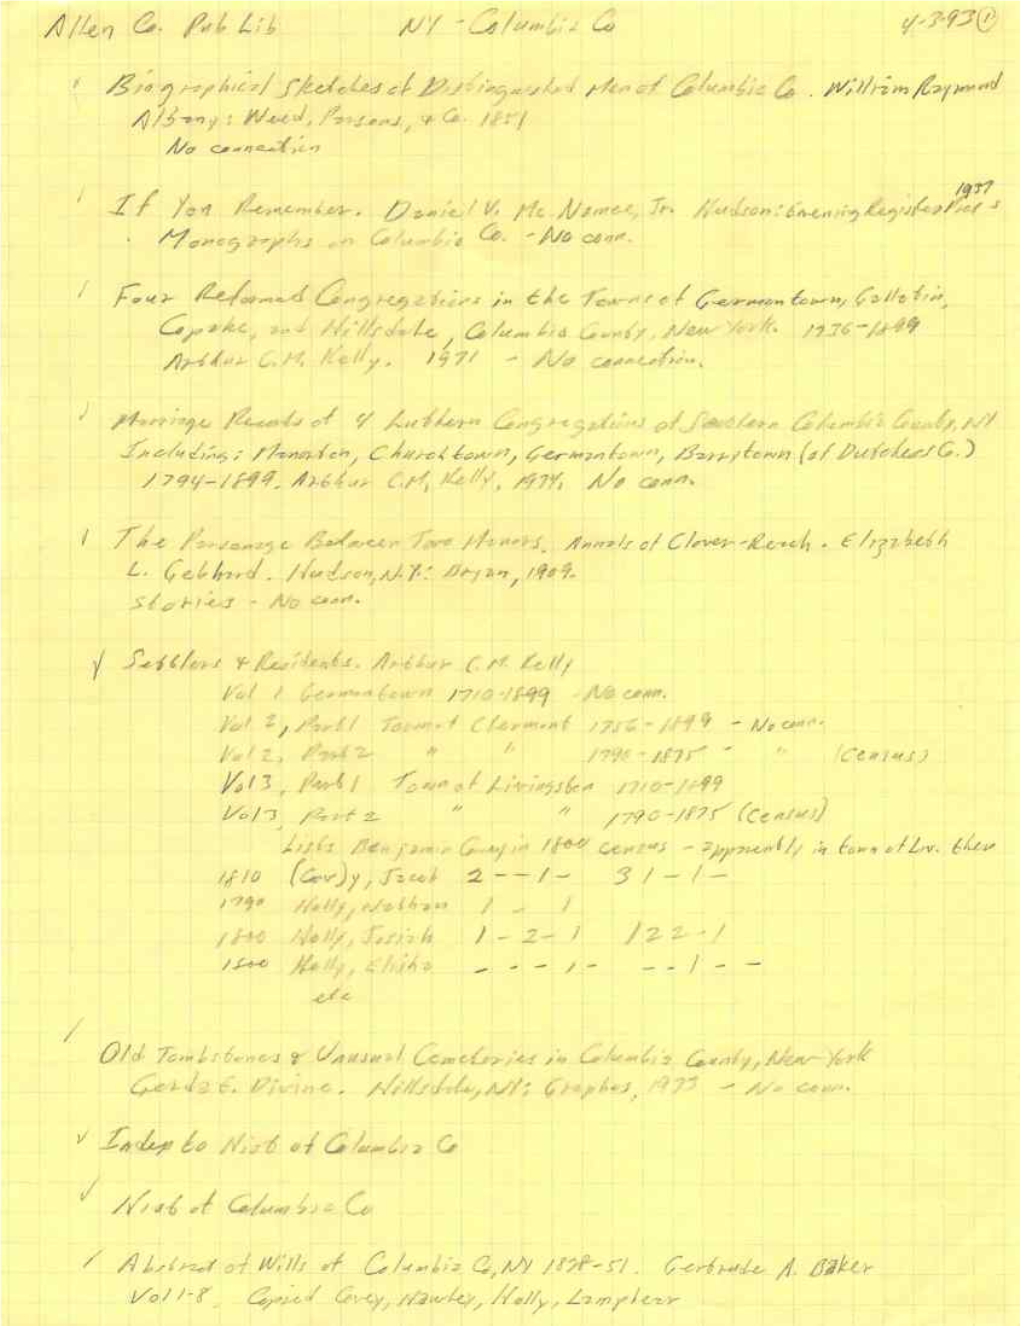 Allen Co. Pub Lib NY - Columbia Co 4-3-93 ①
Biographical Sketches of Distinguished Men of Columbia Co. William Raymond
Albany: Weed, Parsons, & Co. 1851
No connection
If You Remember. Daniel V. McNamee, Jr. Hudson: Evening Register Press 1937
Monographs on Columbia Co. - No conn.
Four Reformed Congregations in the Towns of Germantown, Gallatin,
Copake, and Hillsdale, Columbia County, New York. 1736-1899
Arthur C.M. Kelly. 1971 - No connection.
Marriage Records of 4 Luthern Congregations of Southern Columbia County, NY
Including: Manorton, Churchtown, Germantown, Barrytown (of Dutchess Co.)
1794-1899. Arthur C.M. Kelly. 1974. No conn.
The Parsonage Between Two Manors. Annals of Clover-Reach. Elizabeth
L. Gebhard. Hudson, N.Y.: Bryan, 1909.
Stories - No conn.
Settlers & Residents. Arthur C.M. Kelly
Vol 1 Germantown 1710-1899 - No conn.
Vol 2, Part 1 Town of Clermont 1756-1899 - No conn.
Vol 2, Part 2 " " 1790-1875 - " (Census)
Vol 3, Part 1 Town of Livingston 1710-1899
Vol 3, Part 2 " " 1790-1875 (Census)
Lists Benjamin in 1800 census - apparently in town of Liv. then
1810 (Cov)y, Jacob 2 - - 1 - 3 1 - 1 -
1790 Holly, Nathan 1 - 1
1800 Holly, Josiah 1 - 2 - 1 1 2 2 - 1
1800 Holly, Elisha - - - 1 - - - 1 - -
etc
Old Tombstones & Unusual Cemeteries in Columbia County, New York
Gerda E. Divine. Hillsdale, NY: 1973 - No conn.
Index to Hist of Columbia Co
Hist of Columbia Co
Abstract of Wills of Columbia Co, NY 1828-51. Gertrude A. Barker
Vol 1-8. Copied Covey, Hawley, Holly, Lamphear